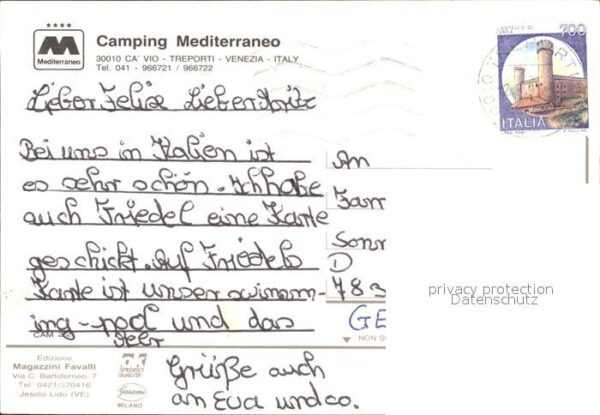 ★★★★
Mediterraneo
Camping Mediterraneo
30010 CA' VIO - TREPORTI - VENEZIA - ITALY
Tel. 041 - 966721 / 966722
CASTELLO DI
700
ITALIA
Lieber Felix Lieber Moritz
Bei uns in Italien ist
es sehr schön. Ich habe
auch Friedel eine Karte
geschickt. Auf Friedels
Karte ist unser swimm-
ing-pool und das
Meer
Grüße auch
an Eva und co.
An
Fam
Sonn
D
783
GE
privacy protection
Datenschutz
CAM
NON S
Edizione
Magazzini Favalli
Via C. Bartolomeo, 7
Tel. 0421/370416
Jesolo Lido (VE)
MILANO